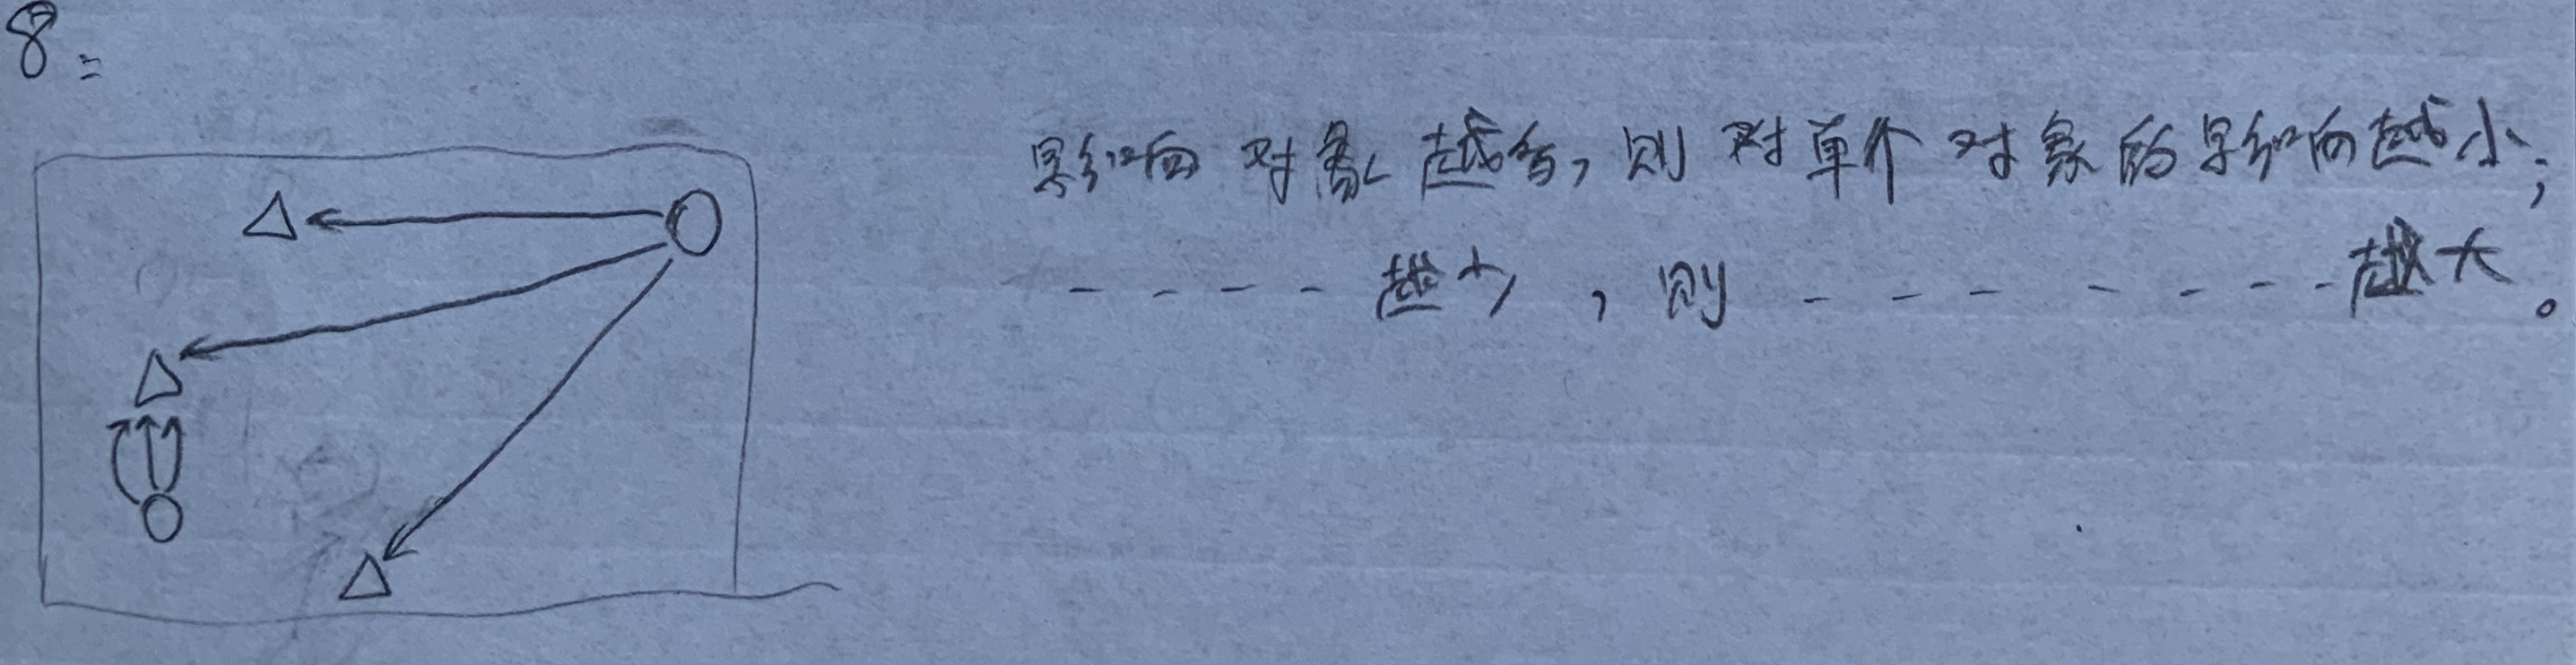 8：
影响对象越多，则对单个对象的影响越小；
----越少，则--------越大。